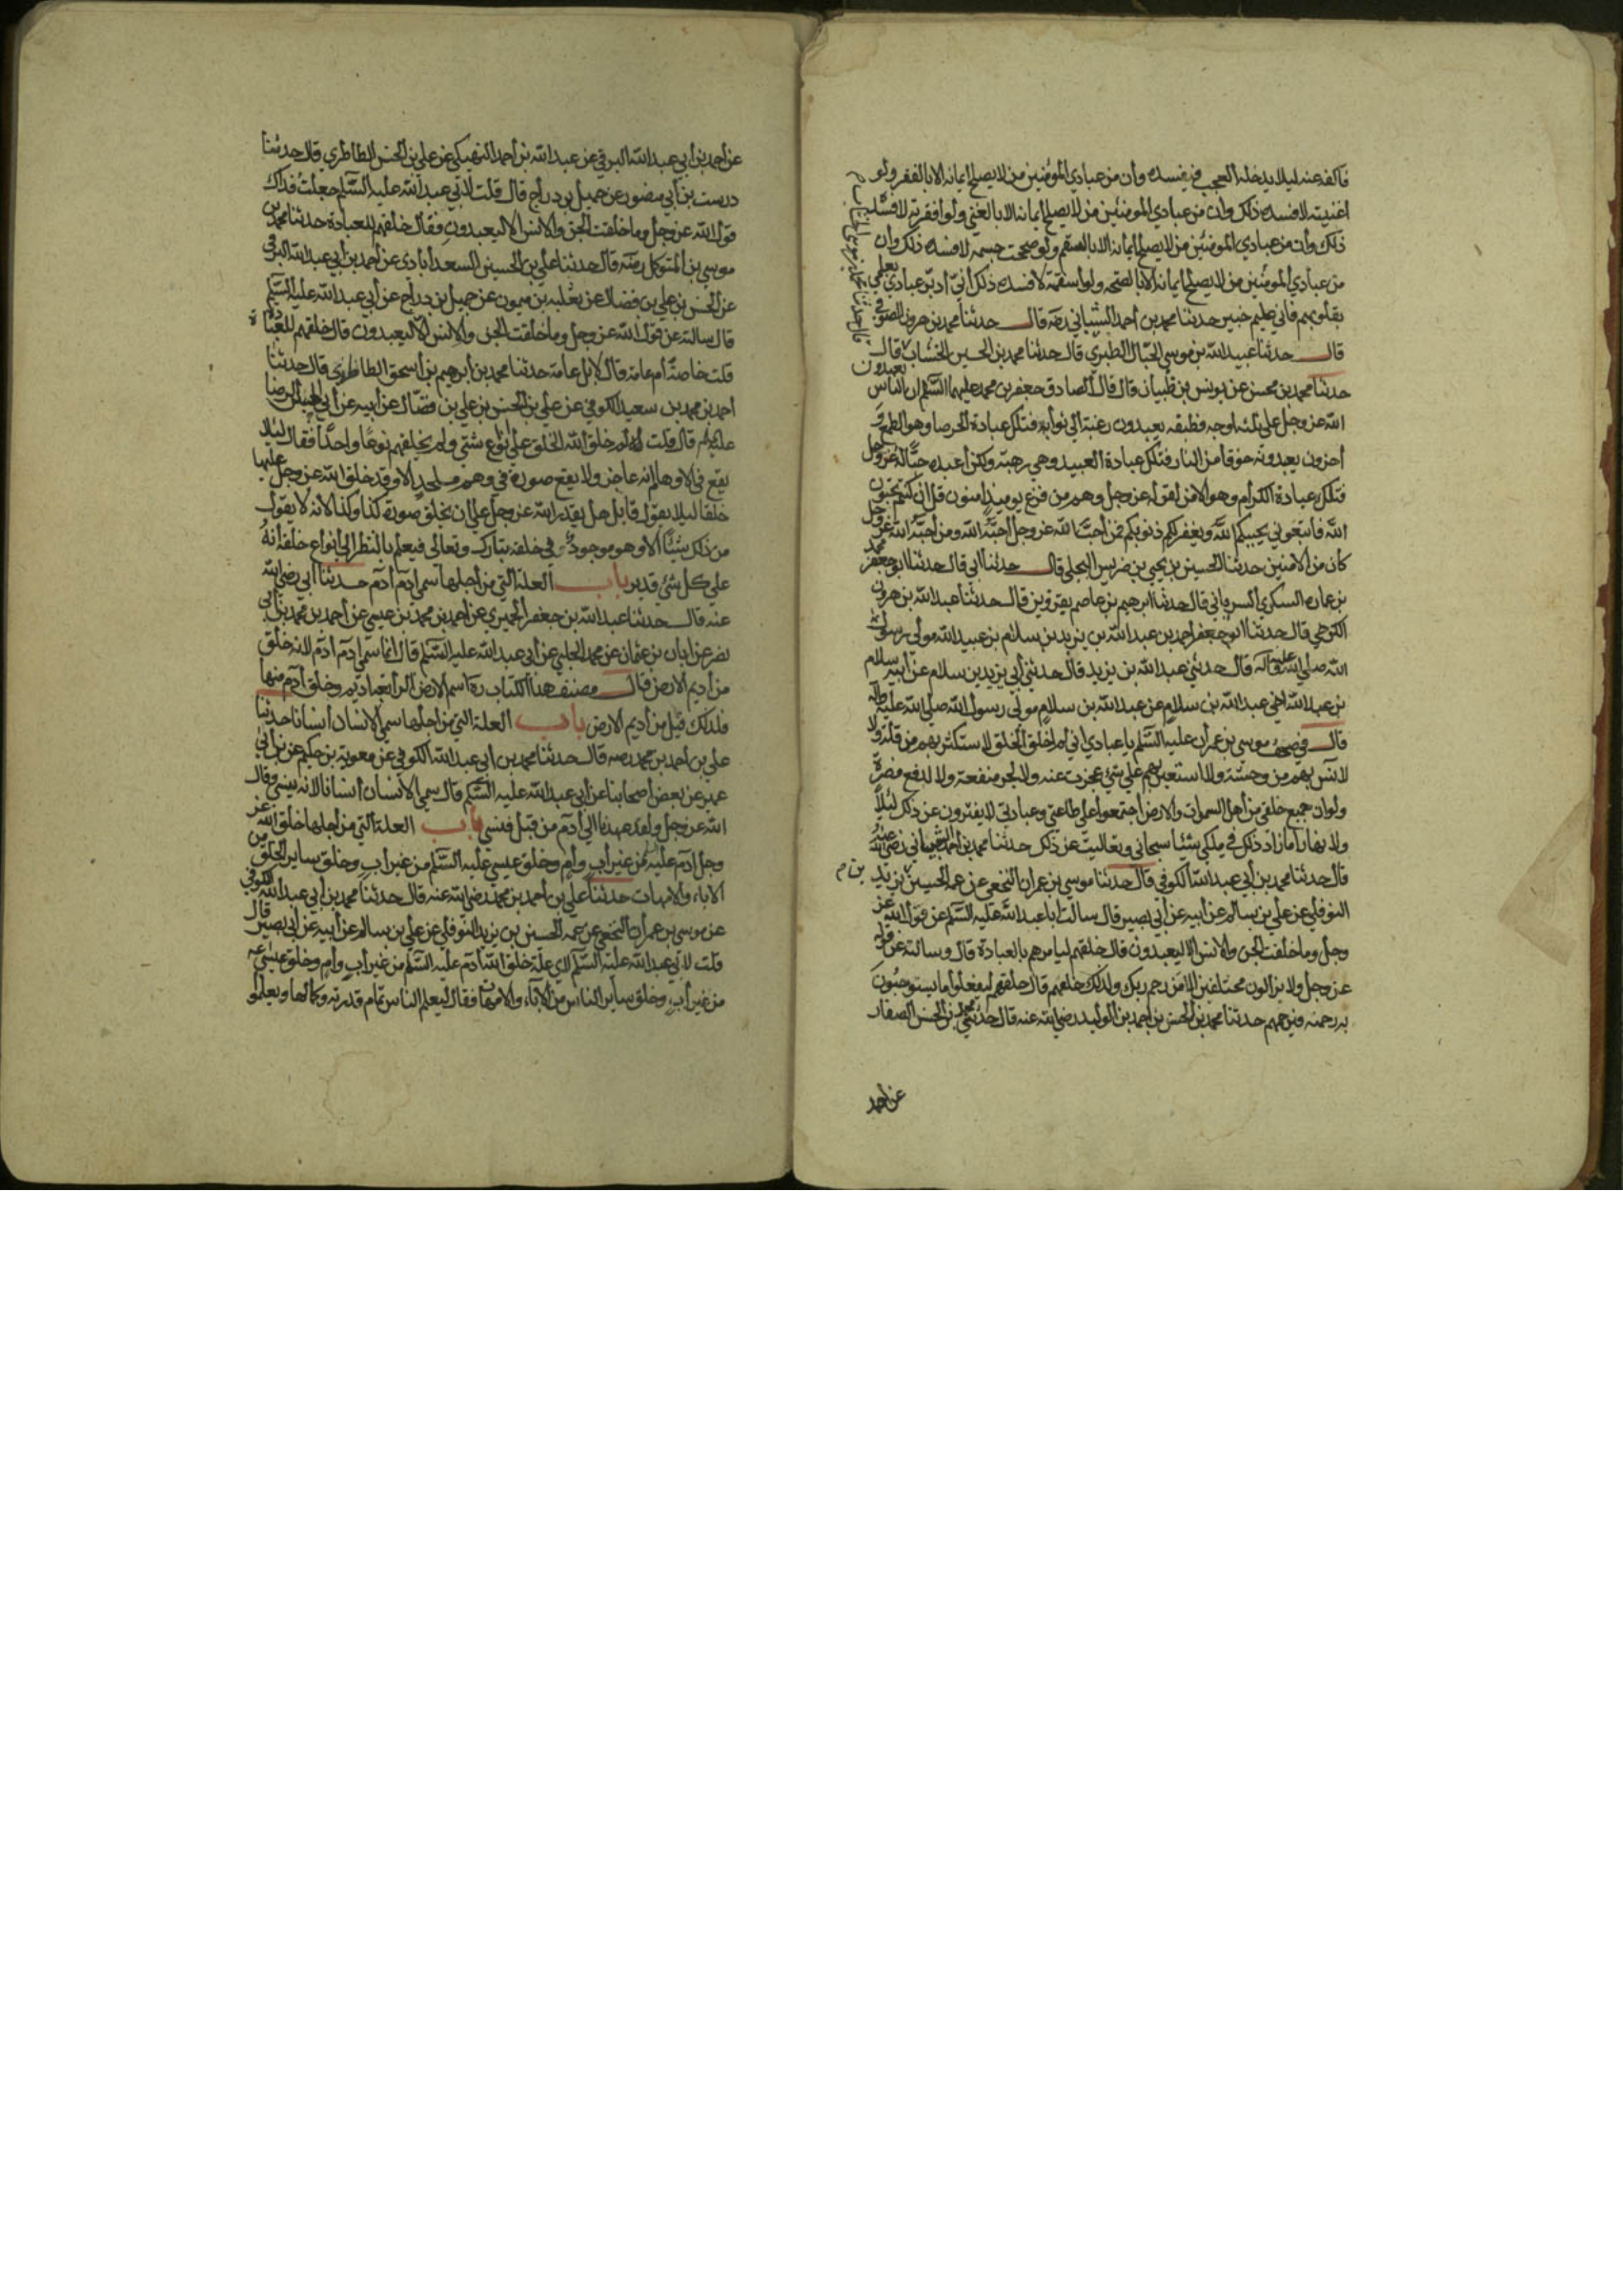 فاكفه عنه ليلا يدخله العجب فيفسده وأن من عبادي المؤمنين من لا يصلح ايمانه الا بالفقر ولو
اغنيته لافسده ذلك وان من عبادي المومنين من لا يصلح ايمانه الا بالغني ولو افقرته لافسده
ذلك وأن من عبادي المومنين من لا يصلح ايمانه الا بالسقم ولو صححت جسمه لافسده ذلك وان
من عبادي المومنين من لا يصلح ايمانه الا بالصحه ولو اسقمته لافسده ذلك أني أدبر عبادي بعلمي
بقلوبهم فاني عليم خبير حدثنا محمد بن أحمد الشيباني رضه قال حدثنا محمد بن هرون الصوفي
قال حدثنا عبيد الله بن موسي الحبال الطبري قال حدثنا محمد بن الحسين الخشاب قال
حدثنا محمد بن محسن عن يونس بن ظبيان قال قال الصادق جعفر بن محمد عليهما السلم ان الناس يعبدون
الله عز وجل علي ثلثه اوجه فطبقه يعبدون رغبة الي ثوابه فتلك عبادة الحرصا وهو الطمع و
أخرون يعبدونه خوفا من النار فتلك عبادة العبيد وهي رهبة ولكن أعبده حبا له عز وجل
فتلك عبادة الكرام وهو الامن لقوله عز وجل وهم من فزع يوميذ امنون قل ان كنتم تحبون
الله فاتبعوني يحببكم الله ويغفر لكم ذنوبكم فمن أحب الله عز وجل أحبه الله ومن أحبه الله عز وجل
كان من الامنين حدثنا الحسين بن يحيي بن ضريس البجلي قال حدثنا ابي قال حدثنا ابو جعفر محمد
بن عماره السكري السرياني قال حدثنا ابرهيم بن عاصم بقزوين قال حدثنا عبد الله بن هرون
الكرخي قال حدثنا ابو جعفر احمد بن عبد الله بن يزيد بن سلام بن عبيد الله مولى رسول
الله صلي الله عليه وآله قال حدثني عبد الله بن يزيد قال حدثني أبي يزيد بن سلام عن أبيه سلام
بن عبد الله اخي عبد الله بن سلام عن عبد الله بن سلام مولى رسول الله صلي الله عليه وآله
قال في صحف موسي بن عمران عليه السلم يا عبادي اني لم اخلق الخلق لاستكثر بهم من قلة ولا
لانس بهم من وحشة ولا لاستعين بهم علي شئ عجزت عنه ولا لجر منفعة ولا لدفع مضرة
ولو ان جميع خلقي من أهل السموات والارض اجتمعوا علي طاعتي وعبادتي لا يفترون عن ذلك ليلا
ولا نهارا ما زاد ذلك في ملكي شيئا سبحاني وتعاليت عن ذلك حدثنا محمد بن أحمد الشيباني رضي الله عنه
قال حدثنا محمد بن أبي عبد الله الكوفي قال حدثنا موسي بن عمران النخعي عن عمه الحسين بن يزيد
النوفلي عن علي بن سالم عن أبيه عن أبي بصير قال سالت أبا عبد الله عليه السلم عن قول الله عز
وجل وما خلقت الجن والانس الا ليعبدون قال خلقهم ليامرهم بالعبادة قال وسالته عن قوله
عز وجل ولا يزالون مختلفين الا من رحم ربك ولذلك خلقهم قال خلقهم ليفعلوا ما يستوجبون
به رحمته فيرحمهم حدثنا محمد بن الحسن بن أحمد بن الوليد رضي الله عنه قال حدثني محمد بن الحسن الصفار
عن احمد
عن أحمد بن أبي عبد الله البرقي عن عبد الله بن أحمد النهيكي عن علي بن الحسن الطاطري قال حدثنا
درست بن أبي منصور عن جميل بن دراج قال قلت لابي عبد الله عليه السلم جعلت فداك
قول الله عز وجل وما خلقت الجن والانس الا ليعبدون فقال خلقهم للعبادة حدثنا محمد بن
موسي بن المتوكل رضه قال حدثنا علي بن الحسين السعدابادي عن أحمد بن أبي عبد الله البرقي
عن الحسن بن علي بن فضال عن ثعلبه بن ميمون عن جميل بن دراج عن أبي عبد الله عليه السلم
قال سالته عن قول الله عز وجل وما خلقت الجن والانس الا ليعبدون قال خلقهم للعبادة
قلت خاصة أم عامة قال لا بل عامة حدثنا محمد بن أبرهيم بن أسحق الطاطري قال حدثنا
أحمد بن محمد بن سعيد الكوفي عن علي بن الحسن بن علي بن فضال عن أبيه عن أبي الحسن الرضا
عليه السلم قال قلت له لم خلق الله الخلق علي أنواع شتي ولم يخلقهم نوعا واحدا فقال ليلا
يقع في الاوهام انه عاجز ولا يقع صورة في وهم ملحد الا وقد خلق الله عز وجل عليها
خلقا ليلا يقول قايل هل يقدر الله عز وجل علي ان يخلق صورة كذا وكذا لانه لا يقول
من ذلك شيئا الا وهو موجود في خلقه تبارك وتعالي فيعلم بالنظر الي انواع خلقه أنه
علي كل شئ قدير باب العلة التي من أجلها سمي ادم آدم حدثنا ابي رضي الله
عنه قال حدثنا عبد الله بن جعفر الحميري عن احمد بن محمد بن عيسي عن أحمد بن محمد بن أبي
نصر عن ابان بن عثمان عن محمد الحلبي عن أبي عبد الله عليه السلم قال انما سمي ادم آدم لانه خلق
من أديم الارض قال مصنف هذا الكتاب ره اسم الارض الرابعة اديم وخلق آدم منها
فلذلك قيل من أديم الارض باب العلة التي من اجلها سمي الانسان أنسانا حدثنا
علي بن احمد بن محمد رضه قال حدثنا محمد بن ابي عبد الله الكوفي عن معوية بن حكيم عن بن أبي
عمير عن بعض أصحابنا عن أبي عبد الله عليه السلم قال سمي الانسان أنسانا لانه ينسي وقال
الله عز وجل ولقد عهدنا الي آدم من قبل فنسي باب العلة التي من أجلها خلق الله عز
وجل ادم عليه لم من غير أب وأم وخلق عيسي عليه السلم من غير أب وخلق ساير الخلق من
الاباء والامهات حدثنا علي بن أحمد بن محمد رضي الله عنه قال حدثنا محمد بن أبي عبد الله الكوفي
عن موسي بن عمران النخعي عن عمه الحسين بن يزيد النوفلي عن علي بن سالم عن أبيه عن أبي بصير قال
قلت لابي عبد الله عليه السلم لاي علة خلق الله آدم عليه السلم من غير أب وأم وخلق عيسي عه
من غير أب وخلق ساير الناس من الآباء والامهات فقال ليعلم الناس تمام قدرته وكمالها ويعلموا